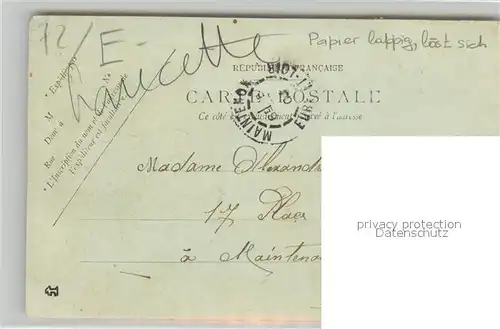 72/E-
Papier lappig, löst sich
Faucette
RÉPUBLIQUE FRANÇAISE
CARTE POSTALE
Ce côté est exclusivement réservé à l'adresse
MAINTENON
* Expéditeur
M
Demt à
Rue N°
* L'inscription du nom et de l'adresse de
l'expéditeur est facultative.
Madame Alexandre
17 Place
à Maintenon
privacy protection
Datenschutz